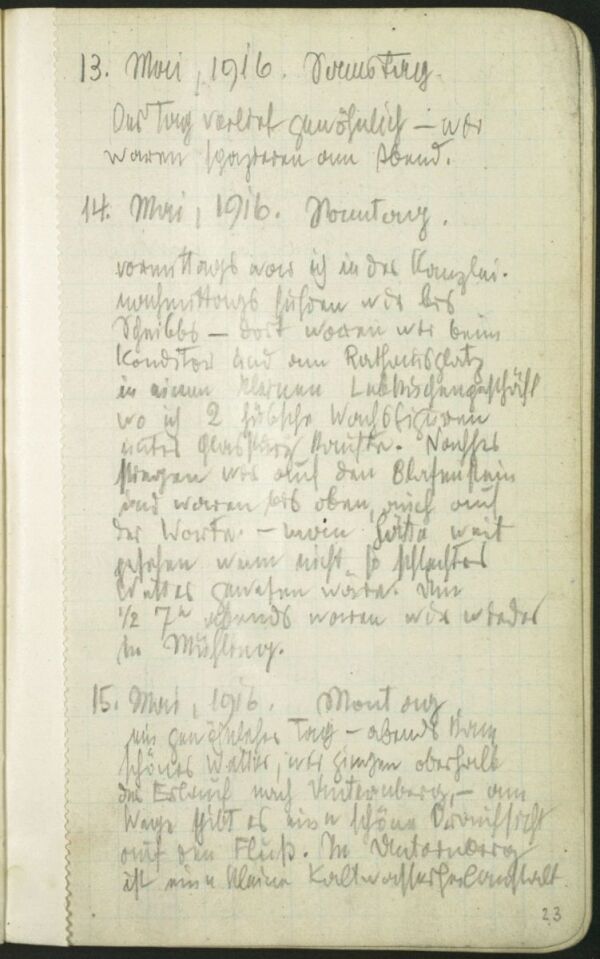 13. Mai, 1916. Samstag.
Der Tag verlief gewöhnlich – wir
waren spazieren am Abend.
14. Mai, 1916. Sonntag.
vormittags war ich in der Kanzlei.
nachmittags fuhren wir bis
Scheibbs – dort waren wir beim
Konditor und am Rathausplatz
in einem kleinen Lebkuchengeschäft
wo ich 2 hübsche Wachsfiguren
unter kaufte. Nachher
stiegen wir auf den Blasenstein
und waren bis oben, auch auf
der Warte. – man hätte weit
gesehen wenn nicht so schlechtes
Wetter gewesen wäre. Um
½ 7h abends waren wir wieder
in Mühling.
15. Mai, 1916. Montag
ein gewöhnlicher Tag – abends kam
schönes Wetter, wir giengen oberhalb
der Erlauf nach Unternberg, – am
Wege gibt es eine schöne Draufsicht
auf den Fluß. In Unternberg
ist eine kleine Kaltwasserheilanstalt
23